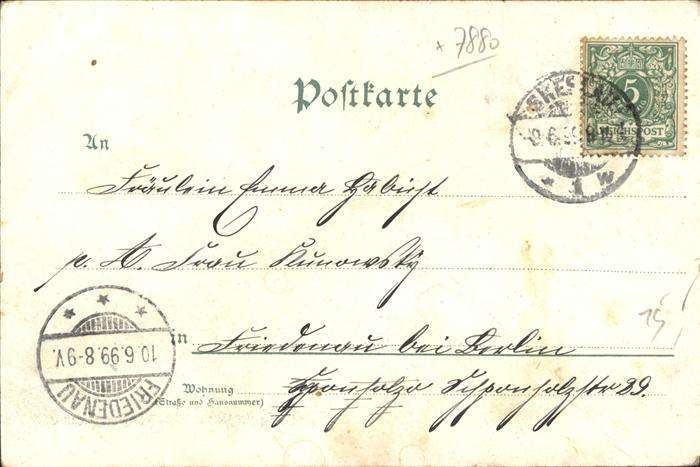 * 7880
Postkarte
5
REICHSPOST
9.6.99
* 1 W
An
Fräulein Emma
p. A. Frau Kunowsky
in Friedenau bei Berlin
Wohnung Sponholzstr 29.
(Straße und Hausnummer)
15
* * *
10.6.99.8-9V.
FRIEDENAU